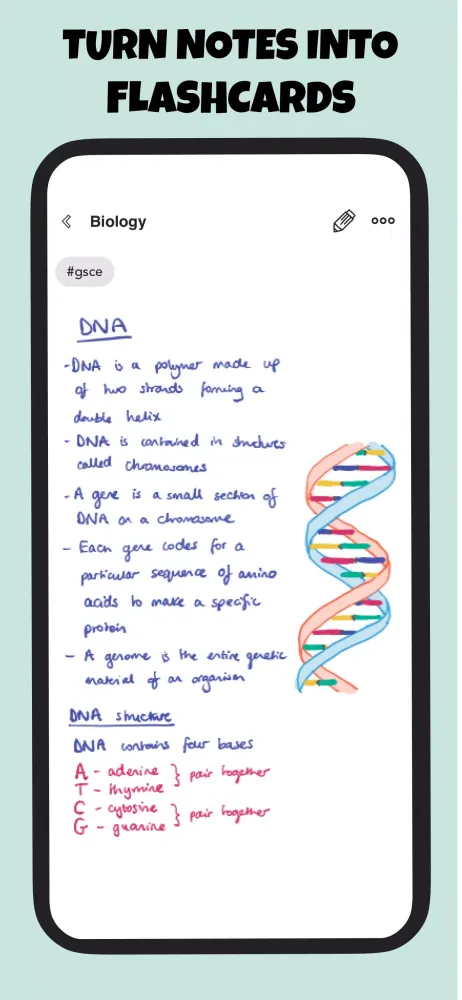 TURN NOTES INTO
FLASHCARDS
Biology
#gsce
DNA
-DNA is a polymer made up
of two strands forming a
double helix
- DNA is contained in structures
called chromosomes
- A gene is a small section of
DNA on a chromosome
- Each gene codes for a
particular sequence of amino
acids to make a specific
protein
- A genome is the entire genetic
material of an organism
DNA structure
DNA contains four bases
A - adenine } pair together
T - thymine
C - cytosine } pair together
G - guanine